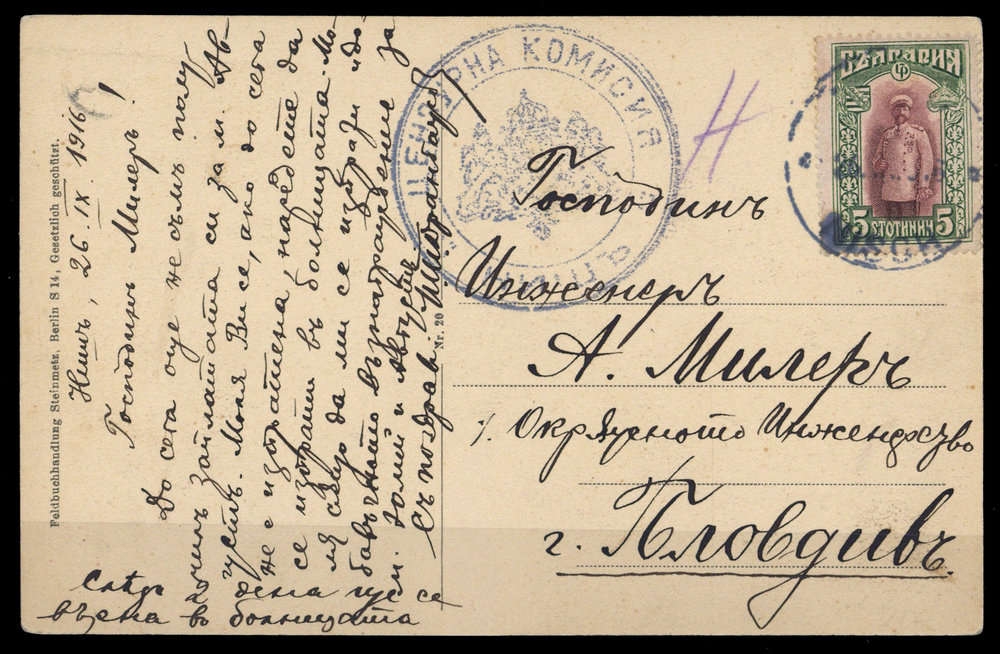 Нишъ, 26. IX. 1916
Господинъ Милеръ!
До сега още не съмъ полу
чилъ заплатата си за м. Ав-
густъ. Моля Ви се, ако до сега
не е изпратена, наредете да
се изпрати въ болницата. Мо-
ля също да ми се изпрати и до-
бавъчното възнаграждение за
м. Юлий и Августъ.
Съ поздрав
Следъ
2 дена пус се
върна въ болницата
Feldbuchhandlung Steinmetz, Berlin S 14, Gesetzlich geschützt.
Nr. 20
ЦЕНЗУРНА КОМИСИЯ
Н
БЪЛГАРИЯ
5 СТОТИНКИ 5
Господинъ
Инженеръ
А. Милеръ
%. Окрѫжното Инженерство
г. Пловдивъ.